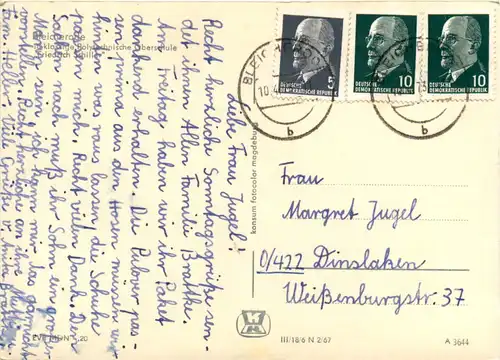 Bleicherode
10-klassige Polytechnische Oberschule
"Friedrich Schiller"
Liebe Frau Jugel!
Recht herzliche Sonntagsgrüße sen-
det ihnen Allen Familie Brattke.
Am Freitag haben wir ihr Paket
dankend erhalten. Die Pulover pas-
sen prima aus den Hosen müssen wir
hinten was raus lassen die Schuhe
passen mich. Recht vielen Dank. Den
nach muß ihr Sohn ein großer
sein, ich kann mir das gar nicht
vorstellen. Recht herzlichen an ihre
Fam. Heller. Viele Grüße v.
konsum fotocolor magdeburg
BLEICHERODE
b
5
DEUTSCHE
DEMOKRATISCHE REPUBLIK
10
DEUTSCHE
DEMOKRATISCHE REPUBLIK
10
DEUTSCHE
DEMOKRATISCHE REPUBLIK
b
Frau
Margret Jugel
0/422 Dinslaken
Weißenburgstr. 37
III/18/6 N 2/67
A 3644